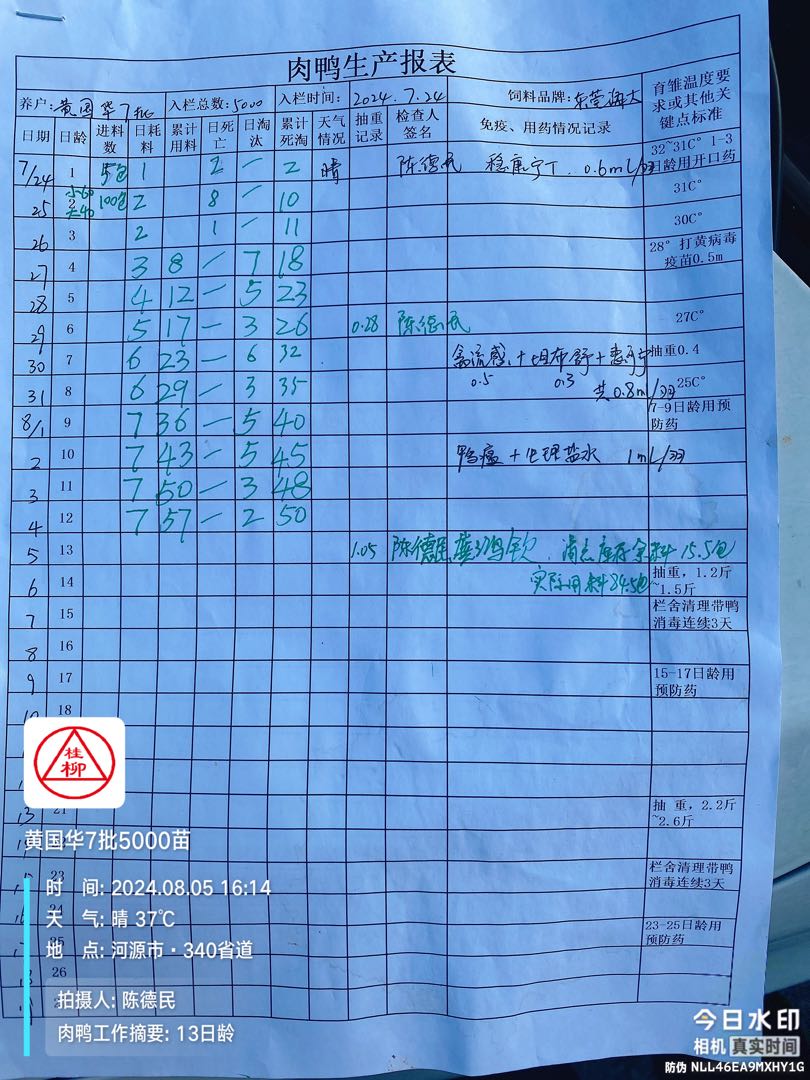 肉鸭生产报表
养户: 黄国华7批 入栏总数: 5000 入栏时间: 2024.7.24 饲料品牌: 东莞海大 育雏温度要求或其他关键点标准
日期 日龄 进料数 日耗料 累计用料 日死亡 日淘汰 累计死淘 天气情况 抽重记录 检查人签名 免疫、用药情况记录
7/24 1 5包 1 2 一 2 晴 陈德民 0.6mL/羽 32~31C° 1-3日龄用开口药
25 2 100包 2 8 一 10 31C°
26 3 2 1 一 11 30C°
27 4 3 8 一 7 18 28° 打黄病毒疫苗0.5m
28 5 4 12 一 5 23
29 6 5 17 一 3 26 0.28 陈德民 27C°
30 7 6 23 一 6 32 禽流感 + 坦布舒 + 抽重0.4
31 8 6 29 一 3 35 0.5 0.3 共0.8ml/羽 25C°
8/1 9 7 36 一 5 40 7-9日龄用预防药
2 10 7 43 一 5 45 鸭瘟 + 生理盐水 1mL/羽
3 11 7 50 一 3 48
4 12 7 57 一 2 50
5 13 1.05 陈德民 库存余料15.5包
6 14 实际用料84.5包 抽重，1.2斤~1.5斤
7 15 栏舍清理带鸭消毒连续3天
8 16
9 17 15-17日龄用预防药
18
13 21 抽 重，2.2斤~2.6斤
23 栏舍清理带鸭消毒连续3天
24
25 23-25日龄用预防药
26
桂柳
黄国华7批5000苗
时 间: 2024.08.05 16:14
天 气: 晴 37℃
地 点: 河源市·340省道
拍摄人: 陈德民
肉鸭工作摘要: 13日龄
今日水印
相机 真实时间
防伪 NLL46EA9MXHY1G